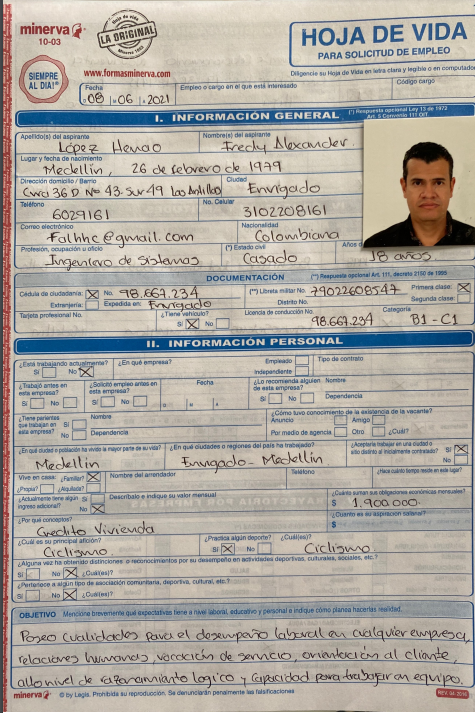 minerva
10-03
Hoja de vida
LA ORIGINAL
minerva 1003
HOJA DE VIDA
PARA SOLICITUD DE EMPLEO
SIEMPRE AL DIA!
www.formasminerva.com
Diligencie su Hoja de Vida en letra clara y legible o en computador
Fecha Empleo o cargo en el que está interesado Código cargo
08 06 2021
I. INFORMACIÓN GENERAL (*) Respuesta opcional Ley 13 de 1972
Art. 5 Convenio 111 OIT
Apellido(s) del aspirante Nombre(s) del aspirante
López Henao Fredy Alexander.
Lugar y fecha de nacimiento
Medellin, 26 de febrero de 1979
Dirección domicilio / Barrio Ciudad
Cra 36 D Nº 43. Sur 49 Las Antillas Envigado
Teléfono No. Celular
6029161 3102208161
Correo electrónico Nacionalidad
falhhc@gmail.com Colombiana
Profesión, ocupación u oficio (*) Estado civil Años d
Ingeniero de sistemas Casado 18 años
DOCUMENTACIÓN (**) Respuesta opcional Art. 111, decreto 2150 de 1995
Cédula de ciudadanía: X No. 98.667.234 (**) Libreta militar No. 79022608547 Primera clase: X
Extranjería: Expedida en: Envigado Distrito No. Segunda clase:
Tarjeta profesional No. ¿Tiene vehículo? Licencia de conducción No. Categoría
Sí X No 98.667.234 B1 - C1
II. INFORMACIÓN PERSONAL
¿Está trabajando actualmente? ¿En qué empresa? Empleado Tipo de contrato
Sí No X Independiente
¿Trabajó antes en esta empresa? ¿Solicitó empleo antes en esta empresa? Fecha ¿Lo recomienda alguien de esta empresa? Nombre
Sí No Sí No D M A Sí No Dependencia
¿Tiene parientes que trabajan en esta empresa? Nombre ¿Cómo tuvo conocimiento de la existencia de la vacante?
Anuncio Amigo
Sí No Dependencia Por medio de agencia Otro ¿Cuál?
¿En qué ciudad o población ha vivido la mayor parte de su vida? ¿En qué ciudades o regiones del país ha trabajado? ¿Aceptaría trabajar en una ciudad o sitio distinto al inicialmente contratado? Sí X
Medellin Envigado - Medellin. No
Vive en casa: ¿Familiar? X Nombre del arrendador Teléfono ¿Hace cuánto tiempo reside en este lugar?
¿Propia? ¿Alquilada?
¿Actualmente tiene algún ingreso adicional? Sí No X Descríbalo e indique su valor mensual ¿Cuánto suman sus obligaciones económicas mensuales?
$ 1.900.000.
¿Por qué conceptos? ¿Cuánto es su aspiración salarial?
Credito Vivienda $
¿Cuál es su principal afición? ¿Practica algún deporte? ¿Cuál(es)?
Ciclismo Sí X No Ciclismo
¿Alguna vez ha obtenido distinciones o reconocimientos por su desempeño en actividades deportivas, culturales, sociales, etc.?
Sí No X ¿Cuál(es)?
¿Pertenece a algún tipo de asociación comunitaria, deportiva, cultural, etc.?
Sí No X ¿Cuál(es)?
OBJETIVO Mencione brevemente qué expectativas tiene a nivel laboral, educativo y personal e indique cómo planea hacerlas realidad.
Poseo cualidades para el desempeño laboral en cualquier empresa,
relaciones humanas, vocación de servicio, orientación al cliente,
alto nivel de razonamiento logico y capacidad para trabajar en equipo.
minerva © by Legis. Prohibida su reproducción. Se denunciarán penalmente las falsificaciones REV. 04-2016